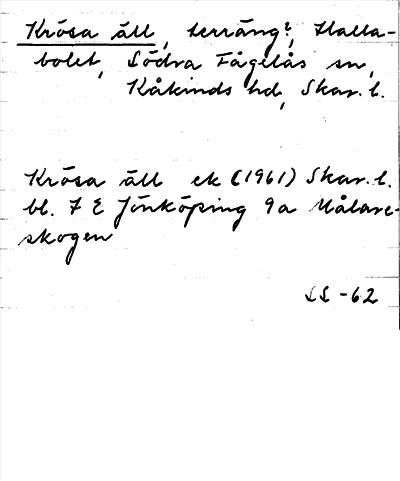 Krösa äll, terräng?, Halla-
bolet, Södra Fågelås sn,
Kåkinds hd, Skar. l.
Krösa äll ek (1961) Skar. l.
bl. 7 E Jönköping 9a Målare-
skogen
LL -62